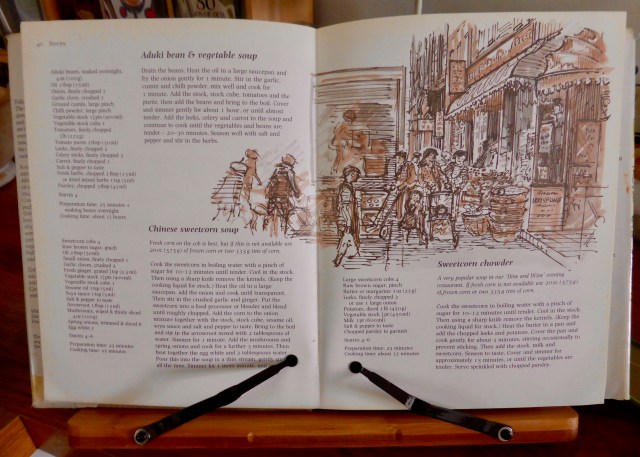 40 Soups
Aduki bean & vegetable soup
Aduki beans, soaked overnight,
Oil 2 tbsp
Onion, finely chopped 1
Garlic clove, crushed 1
Ground cumin, large pinch
Chilli powder, large pinch
Vegetable stock
Vegetable stock cube 1
Tomatoes, finely chopped
Tomato puree
Leeks, finely chopped 2
Celery sticks, finely chopped
Carrot, finely chopped 1
Salt & pepper to taste
Fresh herbs, chopped
or dried mixed herbs 1 tsp (5 ml)
Parsley, chopped
Serves 4
Preparation time: 25 minutes +
soaking beans overnight
Drain the beans. Heat the oil in a large saucepan and
fry the onion gently for 1 minute. Stir in the garlic,
cumin and chilli powder, mix well and cook for
1 minute. Add the stock, stock cube, tomatoes and the
puree, then add the beans and bring to the boil. Cover
and simmer gently for about 1 hour, or until almost
tender. Add the leeks, celery and carrot to the soup and
continue to cook until the vegetables and beans are
tender – 20-30 minutes. Season well with salt and
pepper and stir in the herbs.
Chinese sweetcorn soup
Sweetcorn cobs 4
Raw brown sugar, pinch
Oil
Small onion, finely chopped 1
Garlic cloves, crushed 2
Fresh ginger, grated
Vegetable stock
Vegetable stock cube 1
Sesame oil
Soya sauce
Salt & pepper to taste
Arrowroot
Mushrooms, wiped & thinly sliced
Spring onions, trimmed & sliced 8
Egg white 1
Serves 4-6
Preparation time: 25 minutes
Cooking time: 25 minutes
Fresh corn on the cob is best, but if this is not available use
Cook the sweetcorn in boiling water with a pinch of
sugar for 10-12 minutes until tender. Cool in the stock.
Then using a sharp knife remove the kernels. (Keep the
cooking liquid for stock.) Heat the oil in a large
saucepan, add the onion and cook until transparent.
Then stir in the crushed garlic and ginger. Put the
sweetcorn into a food processor or blender and blend
until roughly chopped. Add the corn to the onion
mixture together with the stock, stock cube, sesame oil,
soya sauce and salt and pepper to taste. Bring to the boil
and stir in the arrowroot mixed with 2 tablespoons of
water. Simmer for 1 minute. Add the mushrooms and
spring onions and cook for a further 5 minutes. Then
beat together the egg white and 2 tablespoons water.
Pour this into the soup in a thin stream,
all the time. Simmer for 1 more minute,
Sweetcorn chowder
Large sweetcorn cobs 4
Raw brown sugar, pinch
Butter or margarine
Leeks, finely chopped 2
or use 1 large onion
Potatoes, diced
Vegetable stock
Milk
Salt & pepper to taste
Chopped parsley to garnish
Serves 4-6
Preparation time: 25 minutes
Cooking time: about 35 minutes
A very popular soup in our 'Dine and Wine' evening
restaurant. If fresh corn is not available use
Cook the sweetcorn in boiling water with a pinch of
sugar for 10-12 minutes until tender. Cool in the stock.
Then using a sharp knife remove the kernels. (Keep the
cooking liquid for stock.) Heat the butter in a pan and
add the chopped leeks and potatoes. Cover the pan and
cook gently for about 5 minutes, stirring occasionally to
prevent sticking. Then add the stock, milk and
sweetcorn. Season to taste. Cover and simmer for
approximately 15 minutes, or until the vegetables are
tender. Serve sprinkled with chopped parsley.